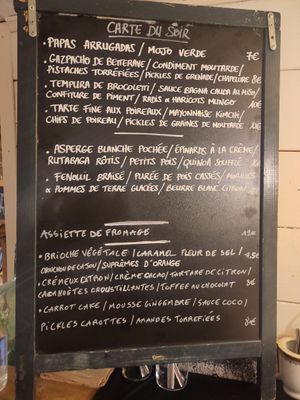 CARTE DU SOIR
. PAPAS ARRUGADAS / MOJO VERDE 7€
GAZPACHO DE BETTERAVE / CONDIMENT MOUTARDE /
PISTACHES TORRÉFIÉES / PICKLES DE GRENADE / CHAPELURE 8€
. TEMPURA DE BROCOLETTI / SAUCE BAGNA CAUDA AU MISO
CONFITURE DE PIMENT / RADIS & HARICOTS MUNGO 10€
. TARTE FINE AUX POIREAUX / MAYONNAISE KIMCHI /
CHIPS DE POIREAU / PICKLES DE GRAINES DE MOUTARDE
. ASPERGE BLANCHE POCHÉE / ÉPINARDS À LA CRÈME /
RUTABAGA RÔTIS / PETITS POIS / QUINOA SOUFFLÉ
. FENOUIL BRAISÉ / PURÉE DE POIS CASSÉS / MORILLES
& POMMES DE TERRE GLACÉES / BEURRE BLANC CITRON
ASSIETTE DE FROMAGE
. BRIOCHE VÉGÉTALE / CARAMEL FLEUR DE SEL /
SUPRÊMES D'ORANGE
. CRÉMEUX CITRON / CRÈME CACAO / TARTARE DE CITRON /
CACAHOÈTES CROUSTILLANTES / TOFFEE AU CHOCOLAT 8€
. CARROT CAKE / MOUSSE GINGEMBRE / SAUCE COCO /
PICKLES CAROTTES / AMANDES TORREFIÉES 8€